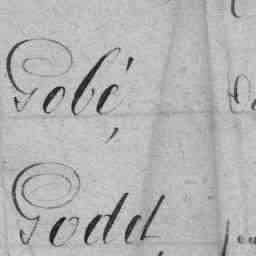 Gobé,
Godd,